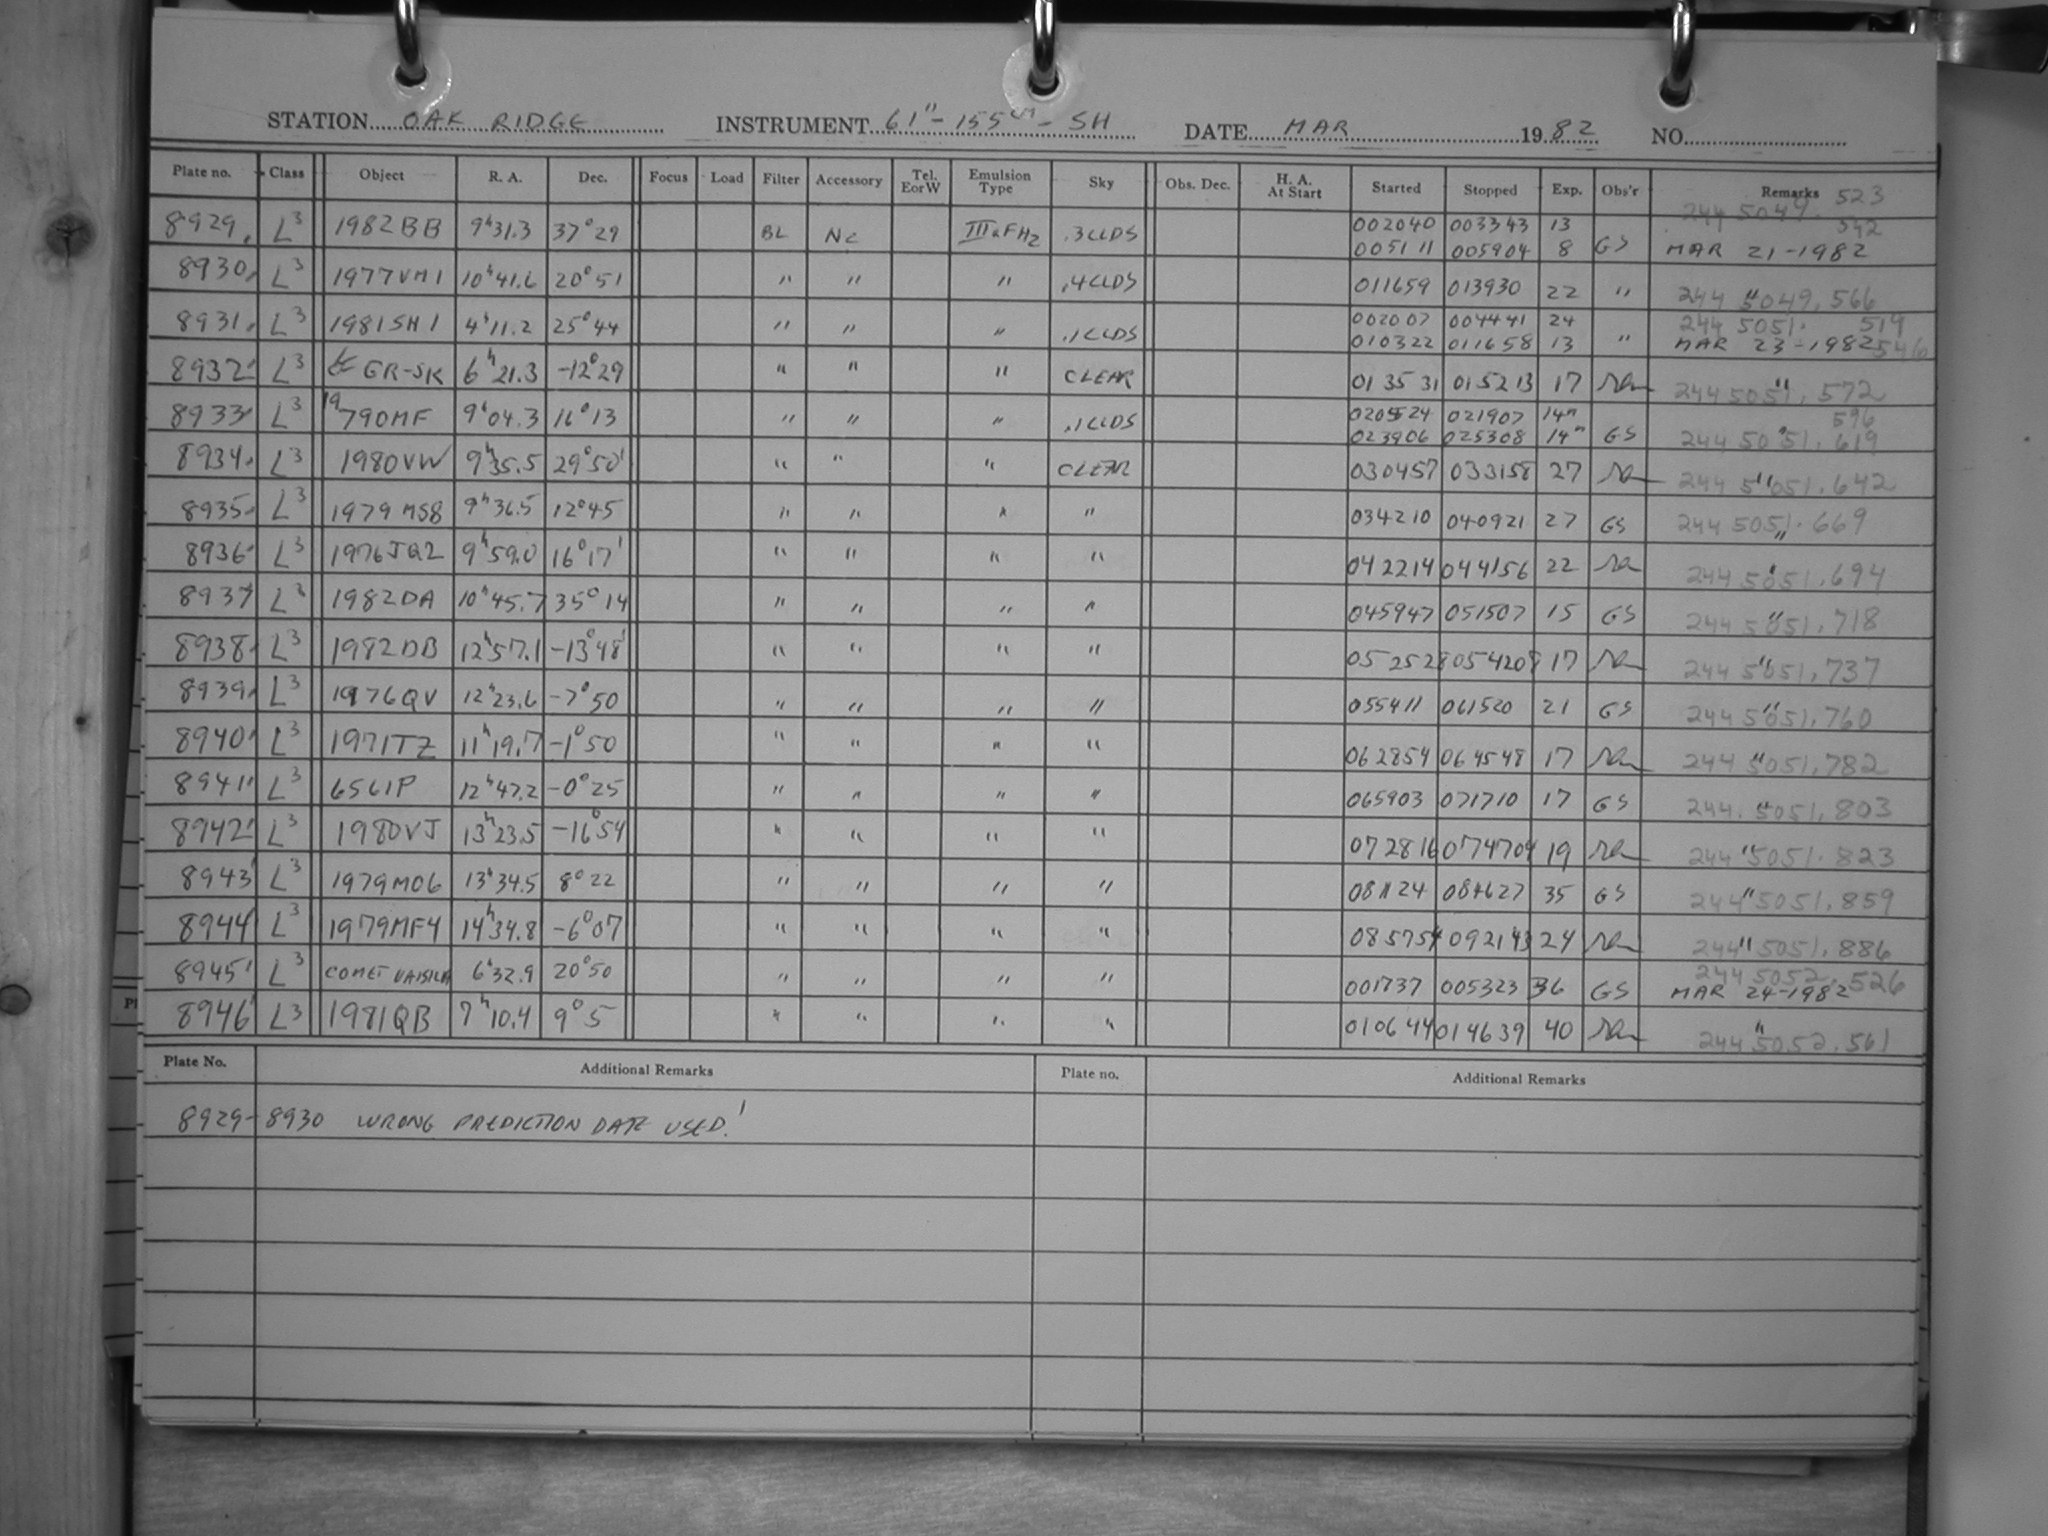 STATION OAK RIDGE INSTRUMENT 61"-155cm-SH DATE MAR 1982 NO.
Plate no. Class Object R. A. Dec. Focus Load Filter Accessory Tel. E or W Emulsion Type Sky Obs. Dec. H. A. At Start Started Stopped Exp. Obs'r Remarks
8929 L3 1982BB 9h31.3 37°29 BL NC IIIaFH2 .3CLDS 002040 003343 13 2445049.523
005111 005904 8 GS .542 MAR 21-1982
8930 L3 1977VM1 10h41.6 20°51 " " " .4CLDS 011659 013930 22 " " 2445049.566
8931 L3 1981SH1 4h11.2 25°44 " " " .1CLDS 002007 004441 24 2445051.519
010322 011658 13 " MAR 23-1982 546
8932 L3 GR-SK 6h21.3 -12°29 " " " CLEAR 013531 015213 17 " 2445051.572
8933 L3 1979OMF 9h04.3 16°13 " " " .1CLDS 020524 021907 14m 596
023906 025308 14m GS " 2445051.619
8934 L3 1980VW 9h35.5 29°50' " " " CLEAR 030457 033158 27 " 2445051.642
8935 L3 1979MS8 9h36.5 12°45 " " " " 034210 040921 27 GS " 2445051.669
8936 L3 1976JQ2 9h59.0 16°17' " " " " 042214 044156 22 " 2445051.694
8937 L3 1982DA 10h45.7 35°14 " " " " 045947 051507 15 GS " 2445051.718
8938 L3 1982DB 12h57.1 -13°48' " " " " 052528 054208 17 " 2445051.737
8939 L3 1976QV 12h23.6 -7°50 " " " " 055411 061520 21 GS " 2445051.760
8940 L3 1971TZ 11h19.7 -1°50 " " " " 062854 064548 17 " 2445051.782
8941 L3 6561P 12h47.2 -0°25 " " " " 065903 071710 17 GS " 244.5051.803
8942 L3 1980VJ 13h23.5 -16°54 " " " " 072816 074704 19 " 2445051.823
8943 L3 1979MO6 13h34.5 8°22 " " " " 081124 084627 35 GS " 2445051.859
8944 L3 1979MF4 14h34.8 -6°07 " " " " 085754 092143 24 " 2445051.886
8945 L3 COMET VAISILA 6h32.9 20°50 " " " " 001737 005323 36 GS 2445052.526 MAR 24-1982
8946 L3 1981QB 7h10.4 9°5 " " " " 010644 014639 40 " 2445052.561
Plate No. Additional Remarks Plate no. Additional Remarks
8929-8930 WRONG PREDICTION DATE USED!